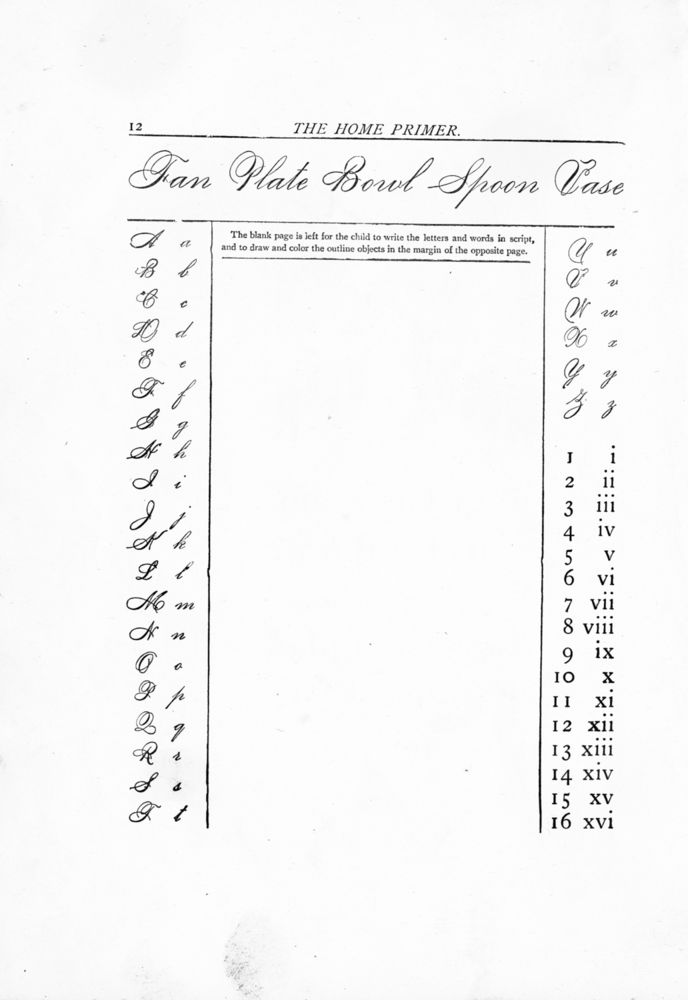 12
THE HOME PRIMER.
Fan Plate Bowl Spoon Vase
The blank page is left for the child to write the letters and words in script,
and to draw and color the outline objects in the margin of the opposite page.
A a
B b
C c
D d
E e
F f
G g
H h
I i
J j
K k
L l
M m
N n
O o
P p
Q q
R r
S s
T t
U u
V v
W w
X x
Y y
Z z
1 i
2 ii
3 iii
4 iv
5 v
6 vi
7 vii
8 viii
9 ix
10 x
11 xi
12 xii
13 xiii
14 xiv
15 xv
16 xvi